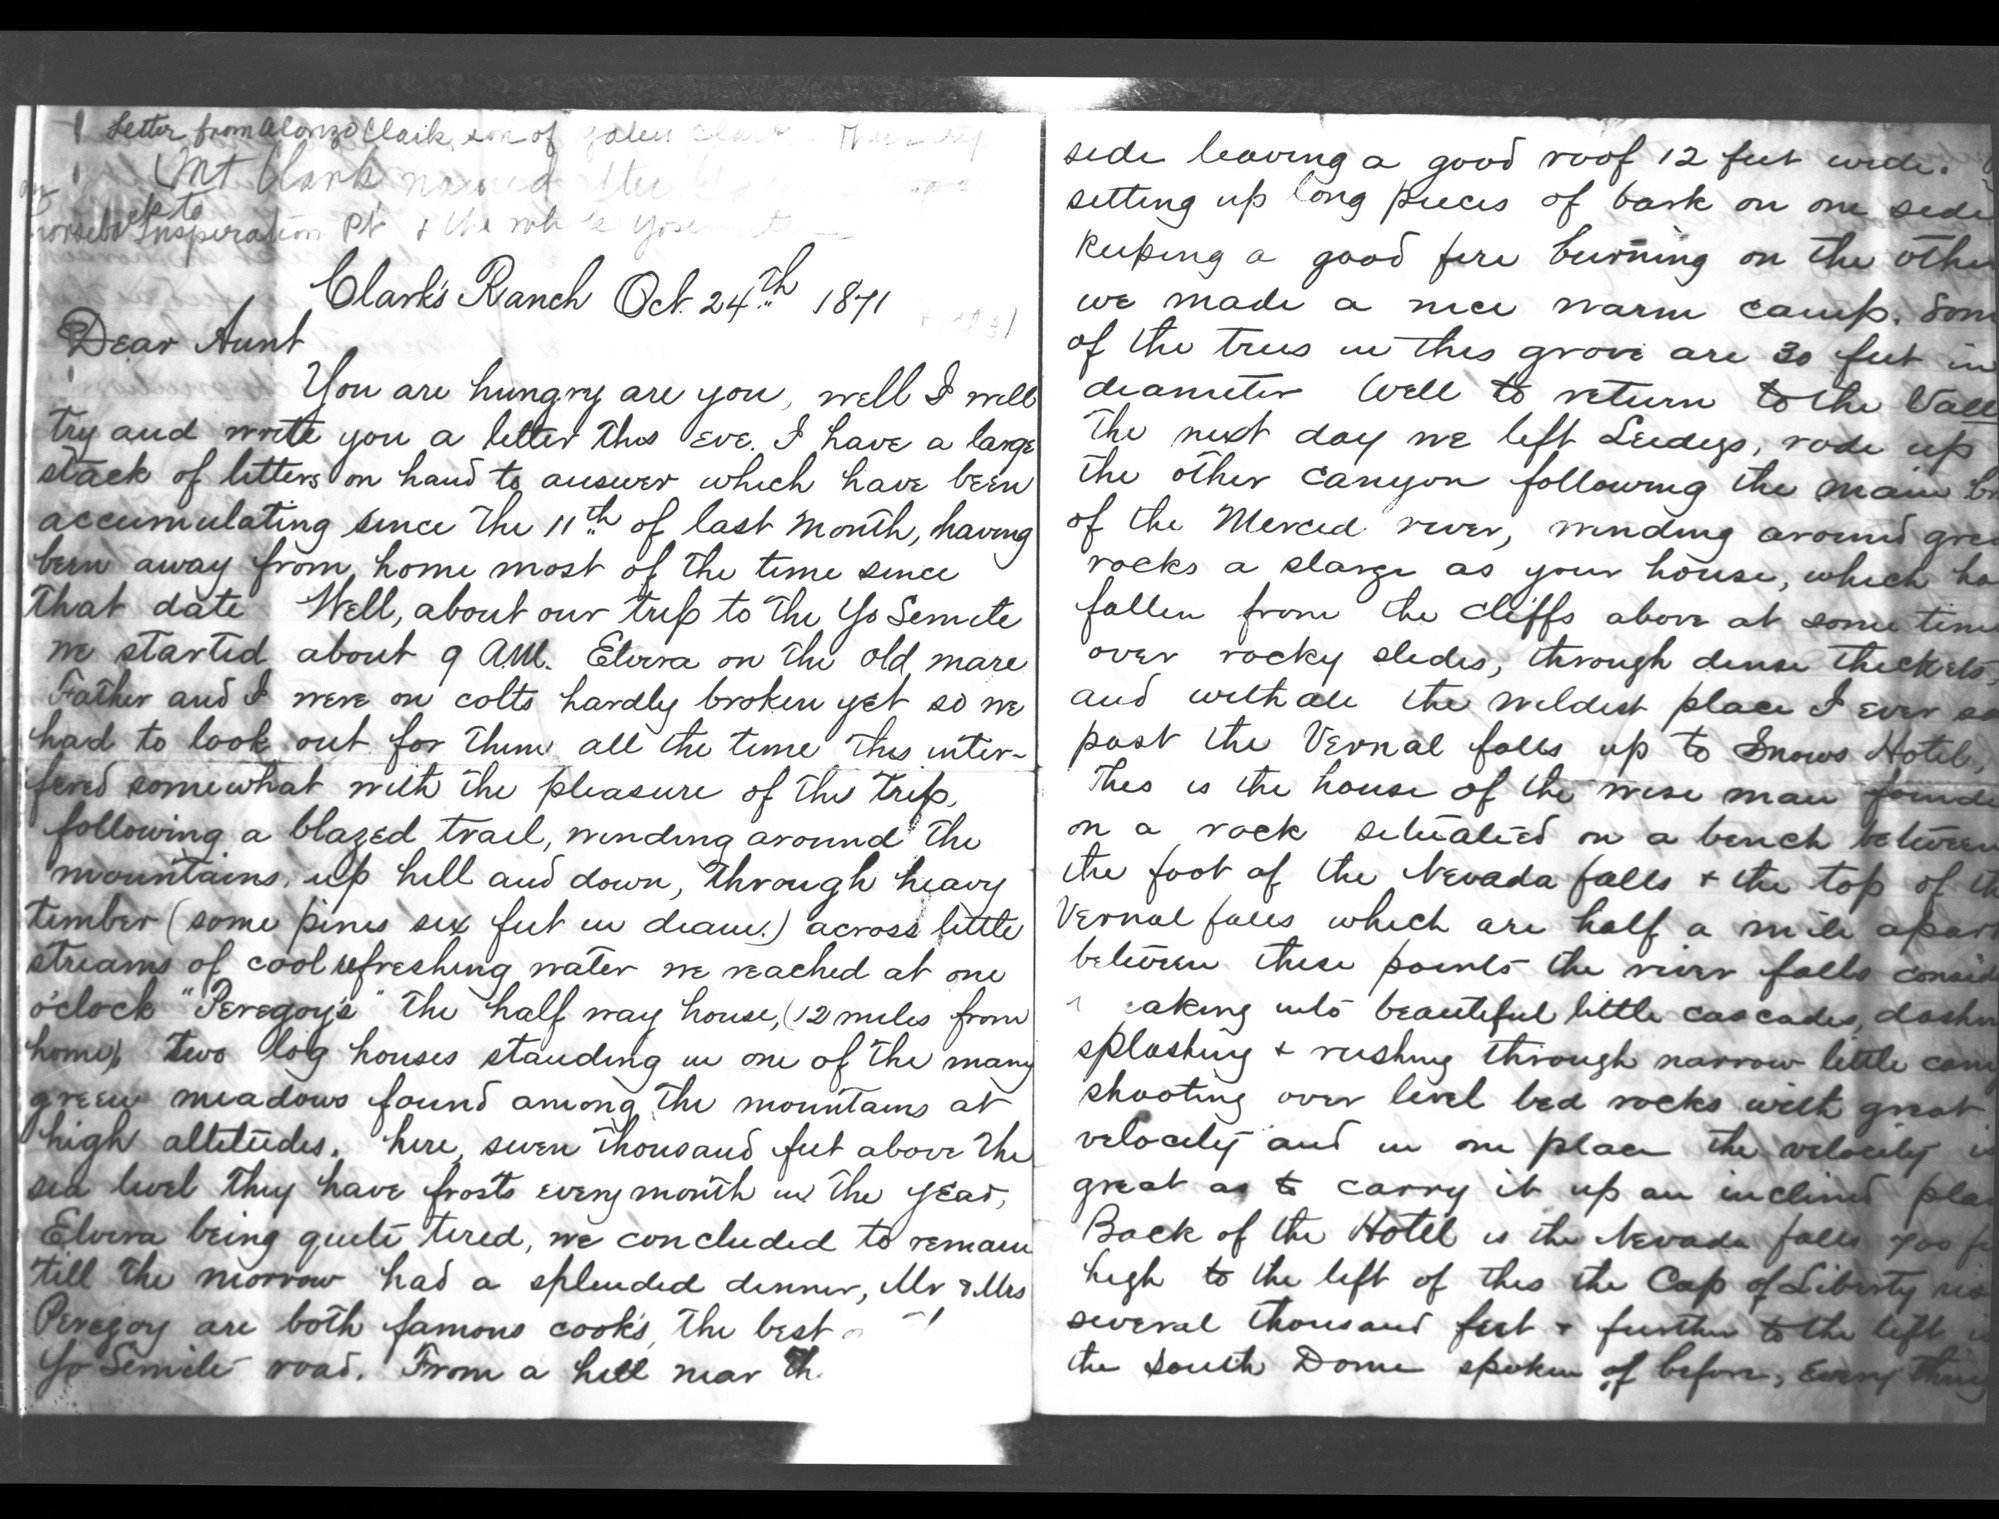 Letter from Alonzo Clark son of Galen Clark
Mt Clark named after
horseback to
Inspiration Pt & the whole Yosemite
Clark's Ranch Oct. 24th 1871
Dear Aunt
You are hungry are you, well I will
try and write you a letter this eve. I have a large
stack of letters on hand to answer which have been
accumulating since the 11th of last month, having
been away from home most of the time since
that date Well, about our trip to the Yo Semite
we started about 9 A.M. Elvira on the old mare
Father and I were on colts hardly broken yet so we
had to look out for them all the time this inter-
fered somewhat with the pleasure of the trip,
following a blazed trail, winding around the
mountains, up hill and down, through heavy
timber (some pines six feet in diam.) across little
streams of cool refreshing water we reached at one
o'clock "Peregoy's" the half way house, (12 miles from
home) two log houses standing in one of the many
green meadows found among the mountains at
high altitudes. here, seven thousand feet above the
sea level they have frosts every month in the year,
Elvira being quite tired, we concluded to remain
till the morrow had a splendid dinner, Mr & Mrs
Peregoy are both famous cooks, the best
Yo Semite road. From a hill near th
side leaving a good roof 12 feet wide.
setting up long pieces of bark on one side
keeping a good fire burning on the other
we made a nice warm camp. Som
of the trees in this grove are 30 feet in
diameter Well to return to the Vall
the next day we left Leidigs, rode up
the other canyon following the main br
of the Merced river, winding around grea
rocks a slarge as your house, which ha
fallen from the cliffs above at some time
over rocky slides, through dense thickets,
and withall the wildest place I ever sa
past the Vernal falls up to Snows Hotel,
This is the house of the wise man founde
on a rock situated on a bench between
the foot of the Nevada falls & the top of th
Vernal falls which are half a mile apart
between these points the river falls consid
eaking into beautiful little cascades, dashin
splashing & rushing through narrow little cany
shooting over level bed rocks with great
velocity and in one place the velocity is
great as to carry it up an inclined plan
Back of the Hotel is the Nevada falls 700 fe
high to the left of this the Cap of Liberty ris
several thousand feet & further to the left is
the South Dome spoken of before, every thing